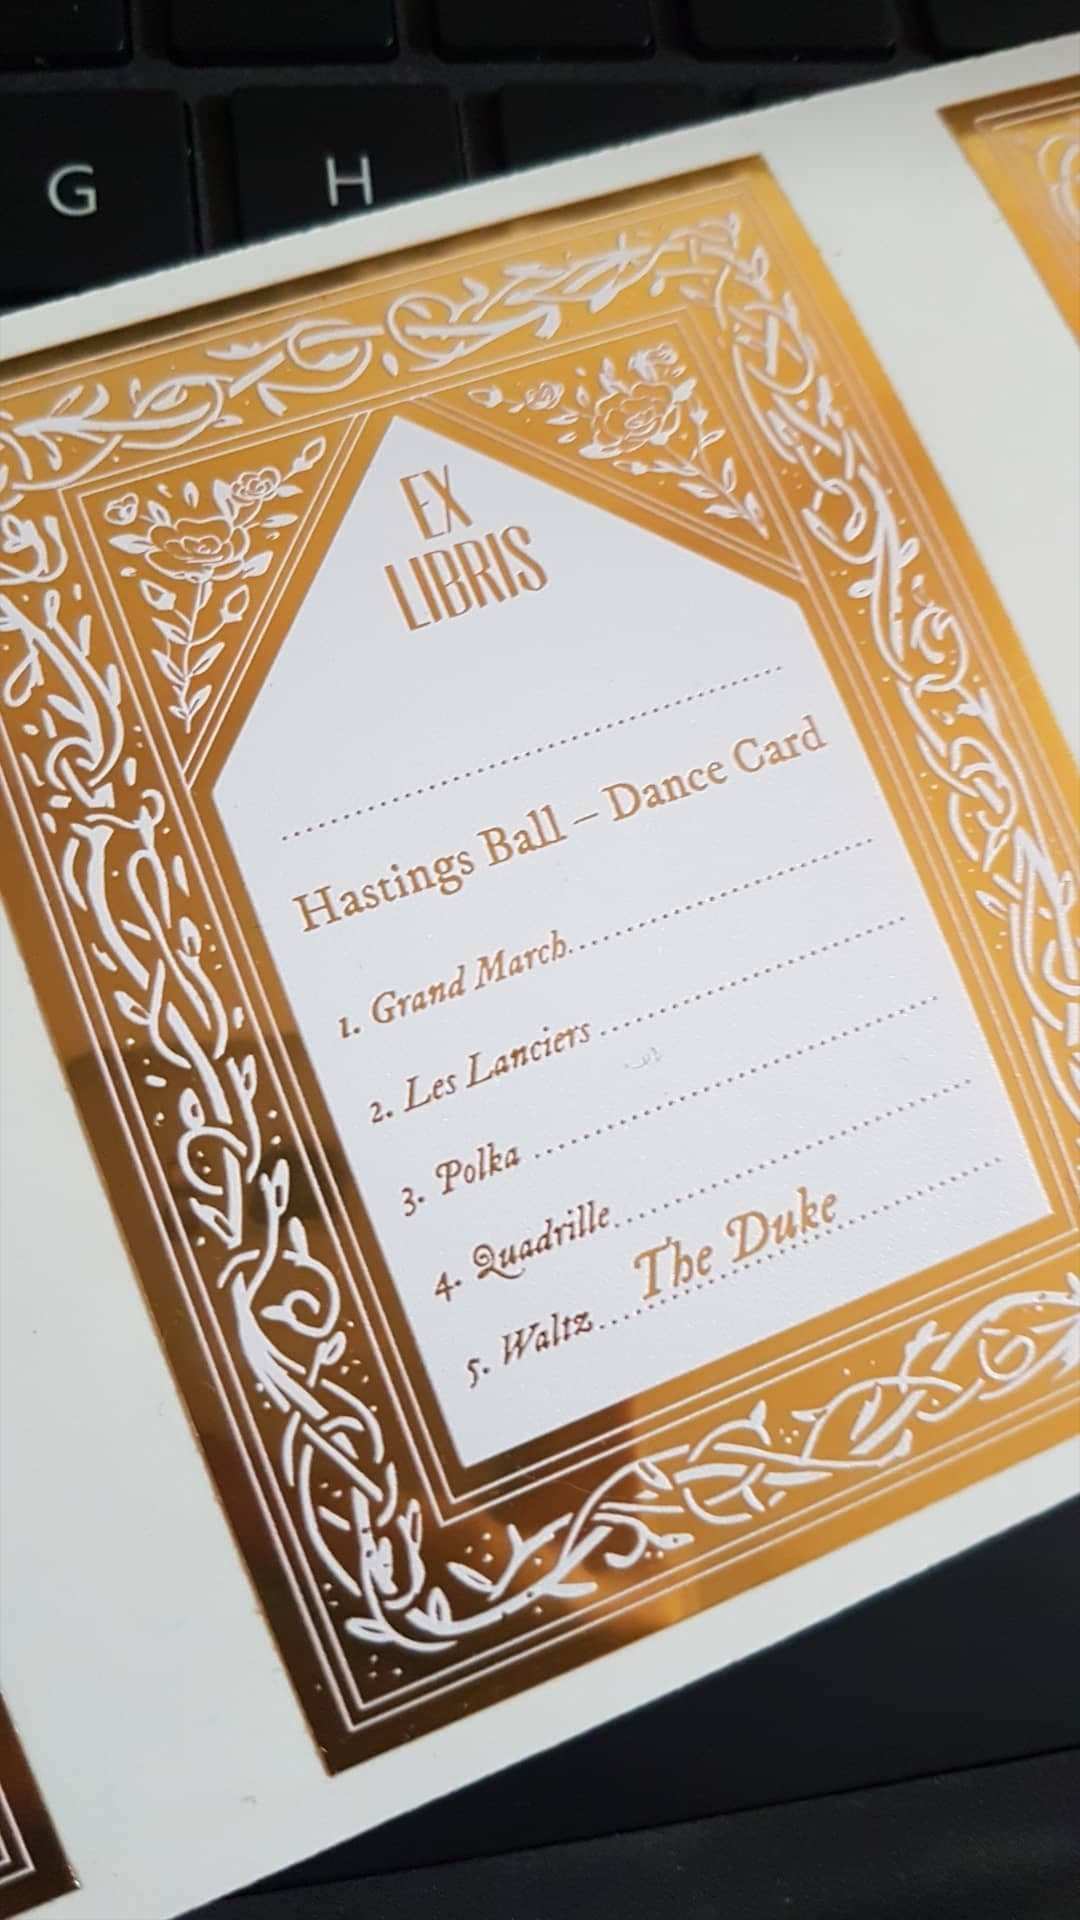 G H
EX
LIBRIS
Hastings Ball – Dance Card
1. Grand March
2. Les Lanciers
3. Polka
4. Quadrille
5. Waltz The Duke